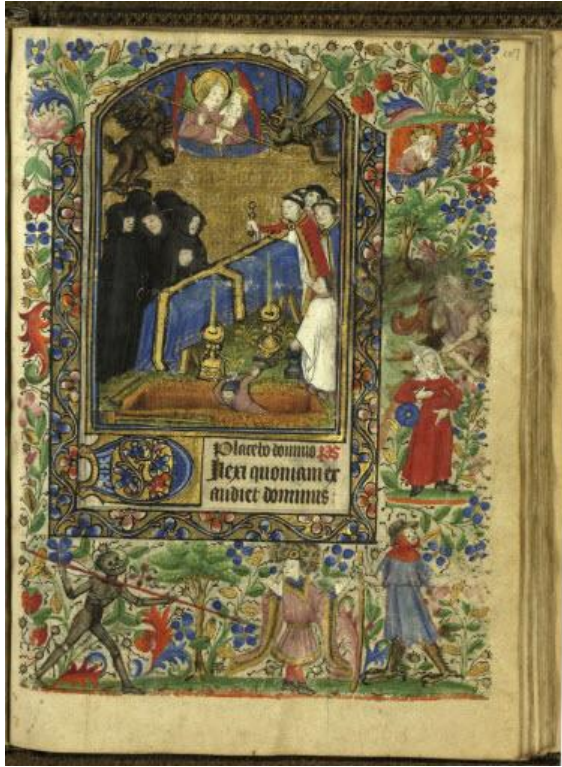 Placebo domino ps
Dilexi quoniam ex
audiet dominus :